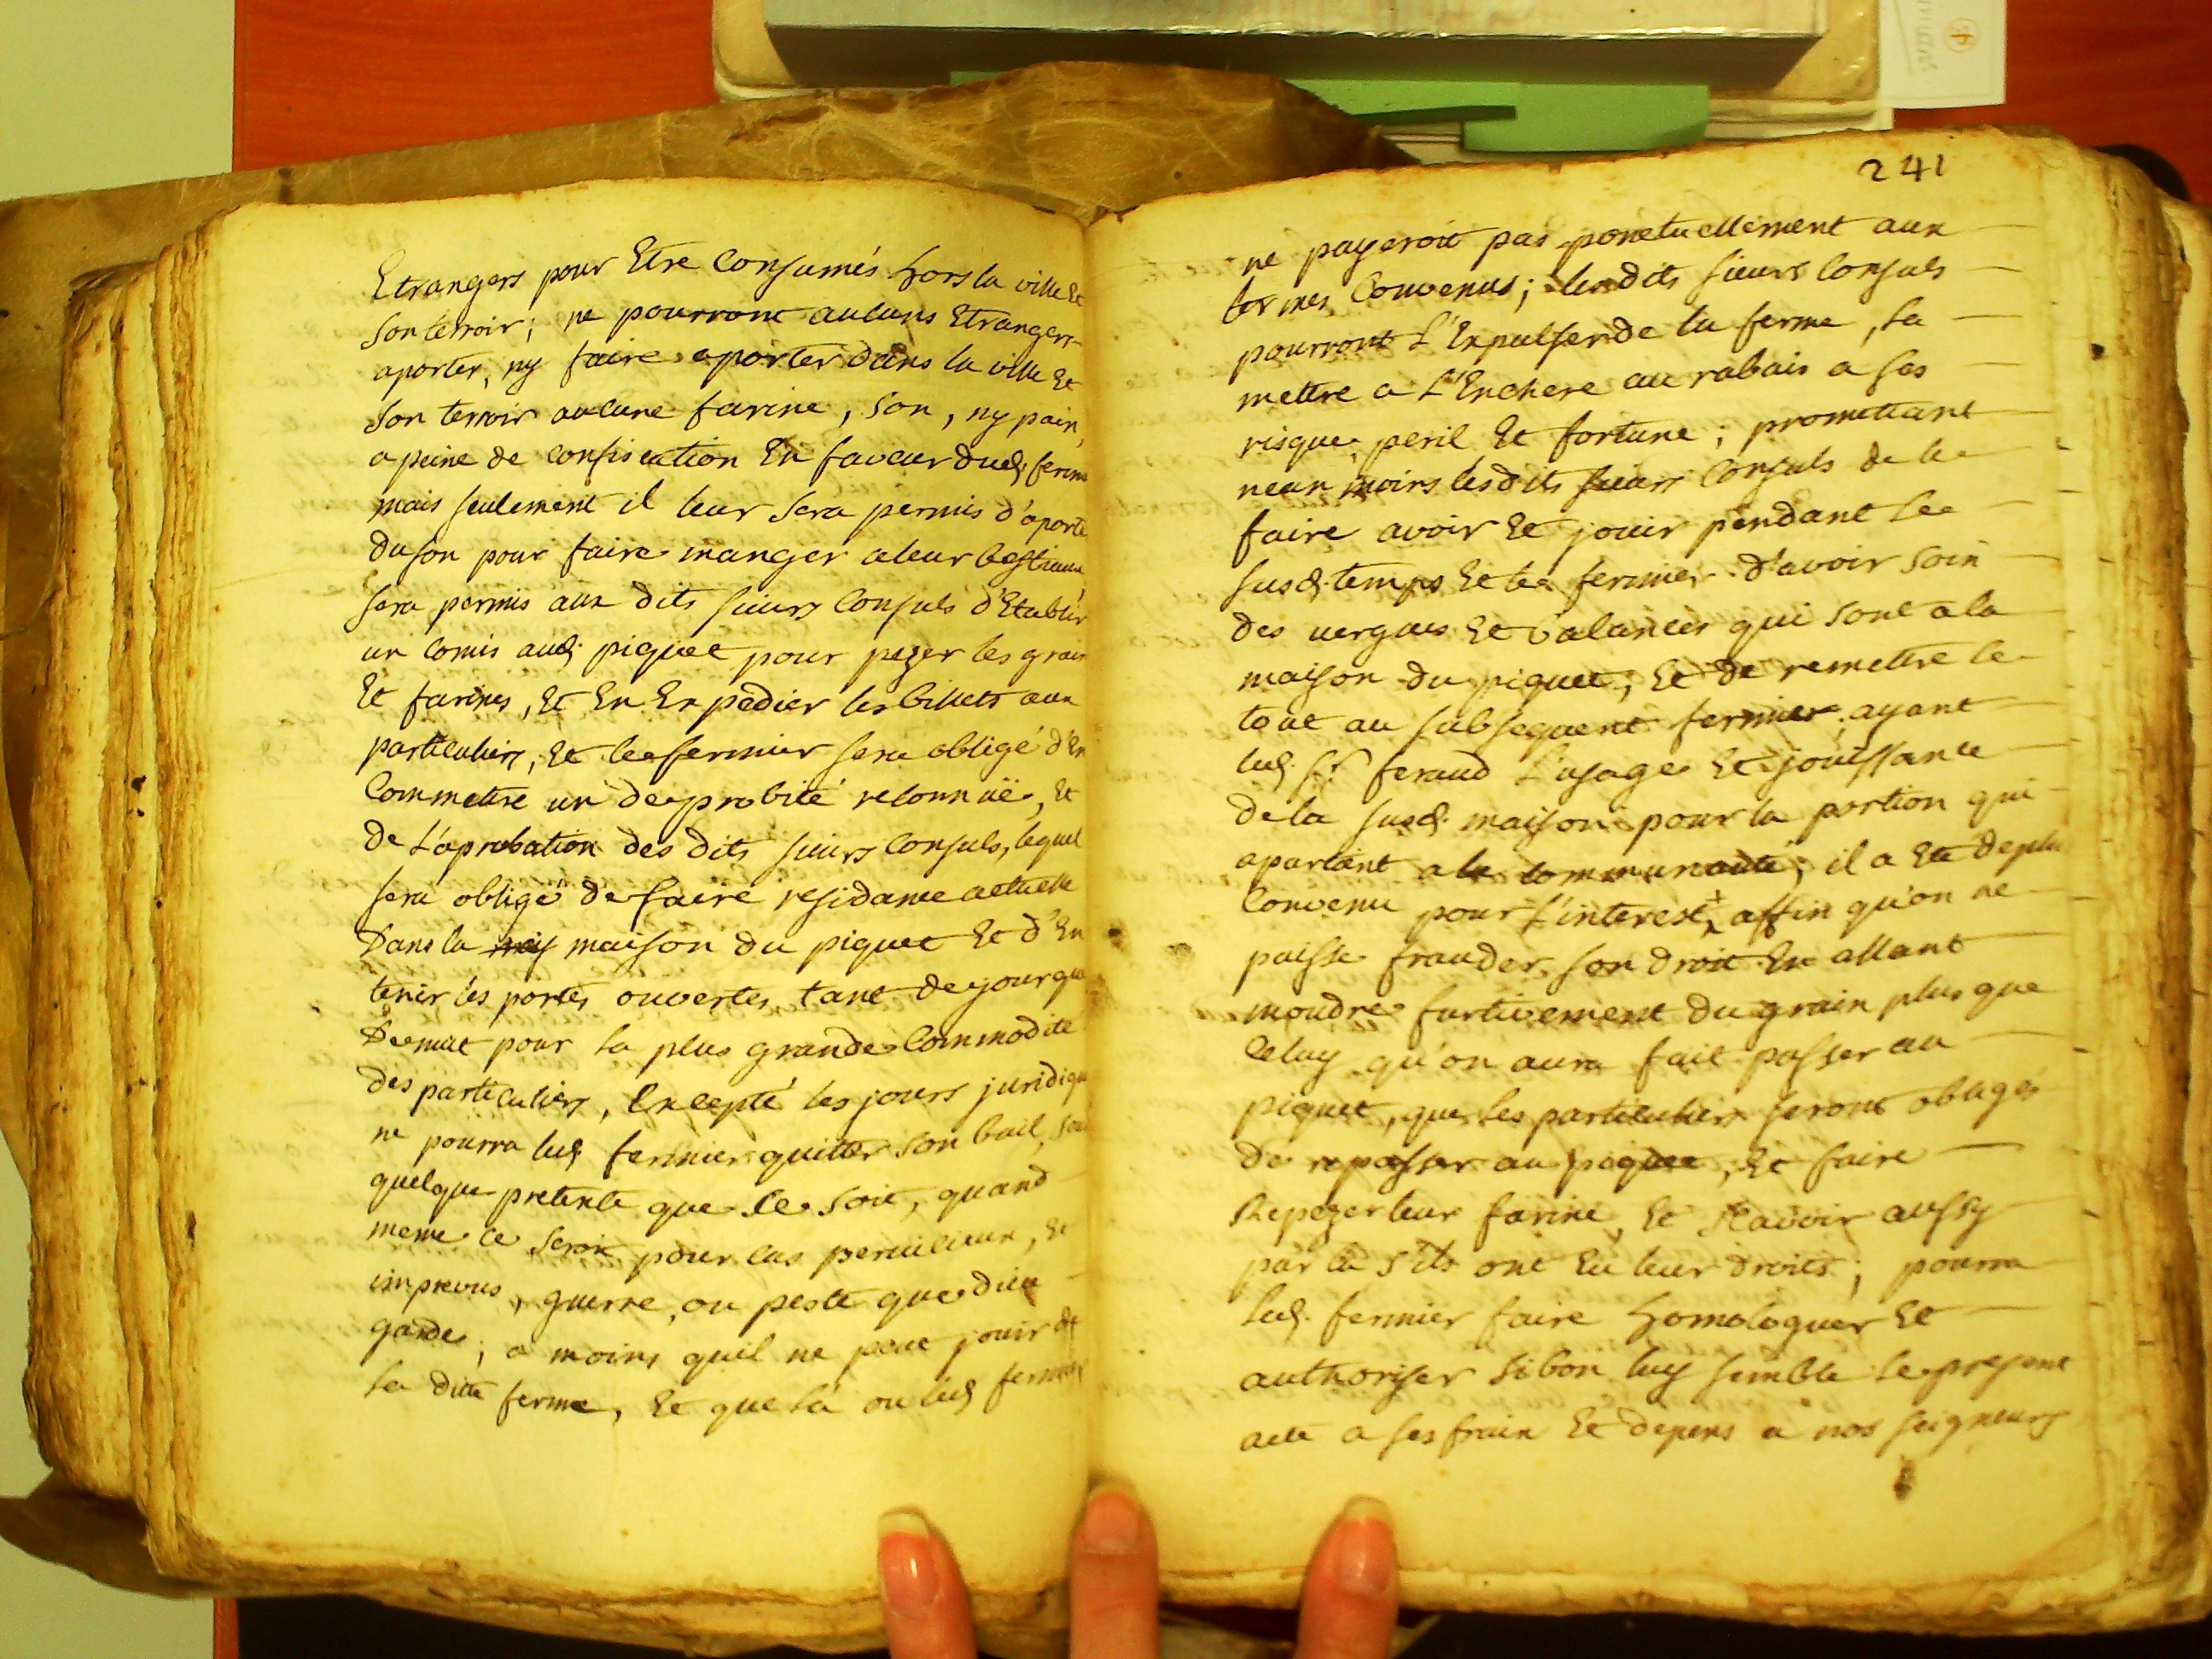 Etrangers pour Etre Consumés hors la ville Et
son terroir; ne pourront aucuns Etrangers
aporter, ny faire aporter dans la ville Et
son terroir aucune farine, son, ny pain,
a peine de confiscation En faveur dud. ferm
mais seulement il leur sera permis d'aporte
du son pour faire manger a leur bestiaux
sera permis aux dits sieurs Consuls d'Etablir
un Comis aud. piquet pour pezer les grain
Et farines, Et En Expedier les billets aux
particuliers, Et le fermier sera obligé d'En
Commettre un de probité reconnuë, Et
de L'aprobation des dits sieurs Consuls, lequel
sera obligé de faire residance actuelle
Dans la maison du piquet Et d'En
tenir les portes ouvertes tant de jour que
De nuit pour la plus grande Commodité
des particuliers, Excepté les jours juridiqu
ne pourra led. fermier quitter son bail, sou
quelque pretexte que Ce Soit, quand
meme ce seroit pour cas perilieux, Et
imprevus, guerre, ou peste que dieu
garde; a moins quil ne peut jouir de
la ditte ferme, Et que la ou led. fermier
241
ne payeroit pas ponctuellement aux
termes Convenus; lesdits sieurs Consuls
pourront L'Expulser de la ferme, la
mettre a L'Enchere au rabais a ses
risque, peril Et fortune; promettant
neanmoins lesdits sieurs Consuls de le
faire avoir Et jouir pendant le
susd. temps Et le fermier d'avoir soin
des vergues Et balances qui sont a la
maison du piquet; Et de remettre le
tout au subsequent fermier, ayant
led. Sr. feraud L'usage Et jouissance
de la susd. maison pour la portion qui
apartient a la communauté; il a Eté de plu
Convenu pour L'interest + affin qu'on ne
puisse frauder son droit En allant
moudre furtivement du grain plus que
Celuy qu'on aura fait passer au
piquet, que les particuliers seront obligés
de repasser au piquet, Et faire
Repezer leur farine, Et sçavoir aussy
par la s'ils ont Eu leur droits; pourra
led. fermier faire homologuer Et
authoriser si bon luy semble le present
acte a ses fraix Et depens a nos seigneurs